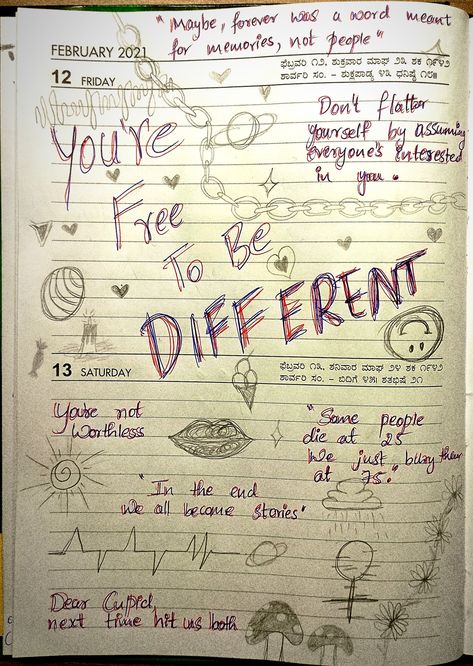 "Maybe, forever was a word meant
for memories, not people"
FEBRUARY 2021
12 FRIDAY
ಫೆಬ್ರವರಿ ೧೨, ಶುಕ್ರವಾರ ಮಾಘ ೨೩ ಶಕ ೧೯೪೨
ಶಾರ್ವರಿ ಸಂ. - ಶುಕ್ಲಪಾಡ್ಯ ೪೩ ಧನಿಷ್ಠೆ
Don't flatter
yourself by assuming
everyone's interested
in you.
You're
Free
To Be
DIFFERENT
13 SATURDAY
ಫೆಬ್ರವರಿ ೧೩, ಶನಿವಾರ ಮಾಘ ೨೪ ಶಕ ೧೯೪೨
ಶಾರ್ವರಿ ಸಂ. - ಬಿದಿಗೆ ೪೫॥ ಶತಭಿಷೆ ೨೧
You're not
Worthless
"Some people
die at 25
We just bury them
at 75."
"In the end
We all become stories"
Dear Cupid,
next time hit us both